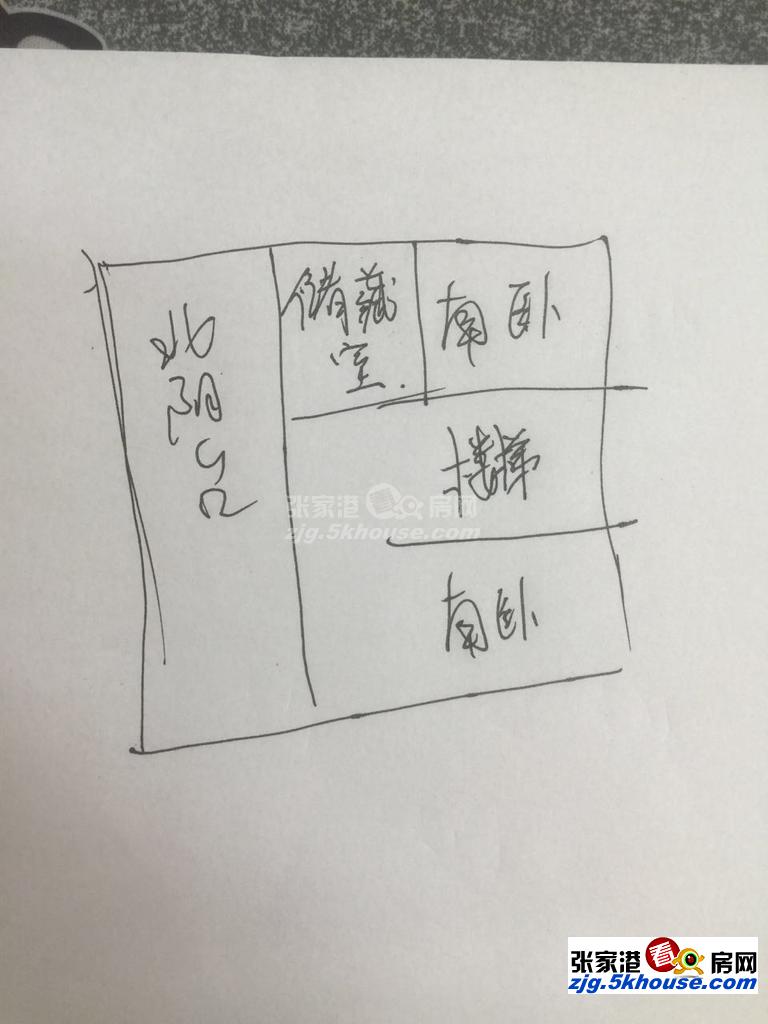 北阳台
储藏
室.
南卧
楼梯
南卧
张家港看房网
zjg.5khouse.com
张家港看房网
zjg.5khouse.com